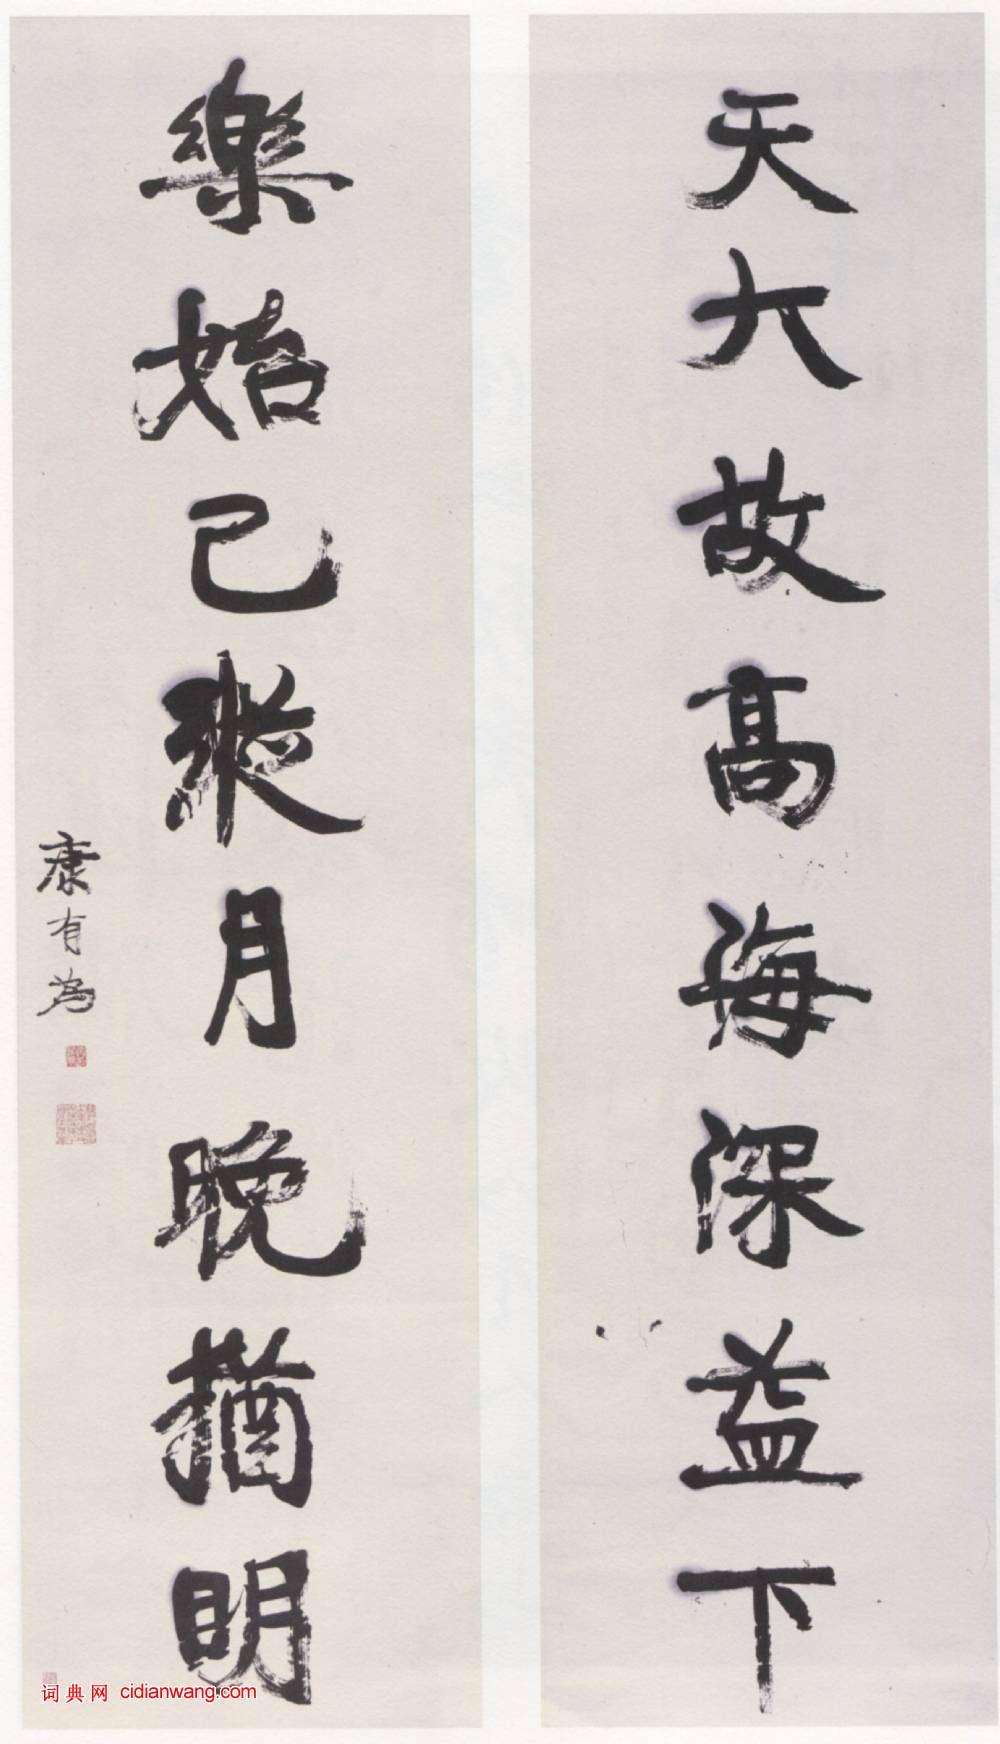 天大故高海深益下
樂始已縱月晚猶明
康有為
词典网 cidianwang.com